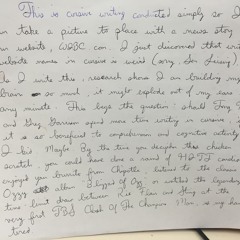 This is cursive writing conducted simply so I
can take a picture to place with a news story
on website, WPBC.com. I just discovered that writing
website names in cursive is weird (sorry, Jon Jeremy).
As I write this, research shows I am building my
brain so mind, it might explode out of my ears
any minute. This begs the question: should Jimy
and Greg Garrison spend more time writing in cursive if
it is so beneficial to comprehension and cognitive activity
I do? Maybe By the time you decipher this chicken
scratch, you could have done a round of HIIT cardio
enjoyed your burrito from Chipotle, listened to the classic
Ozzy album Blizzard of Ozz, or watched the legendary
time limit draw between Ric Flair and Sting at the
very first TBS Clash Of The Champions. Man, is my hand
tired.